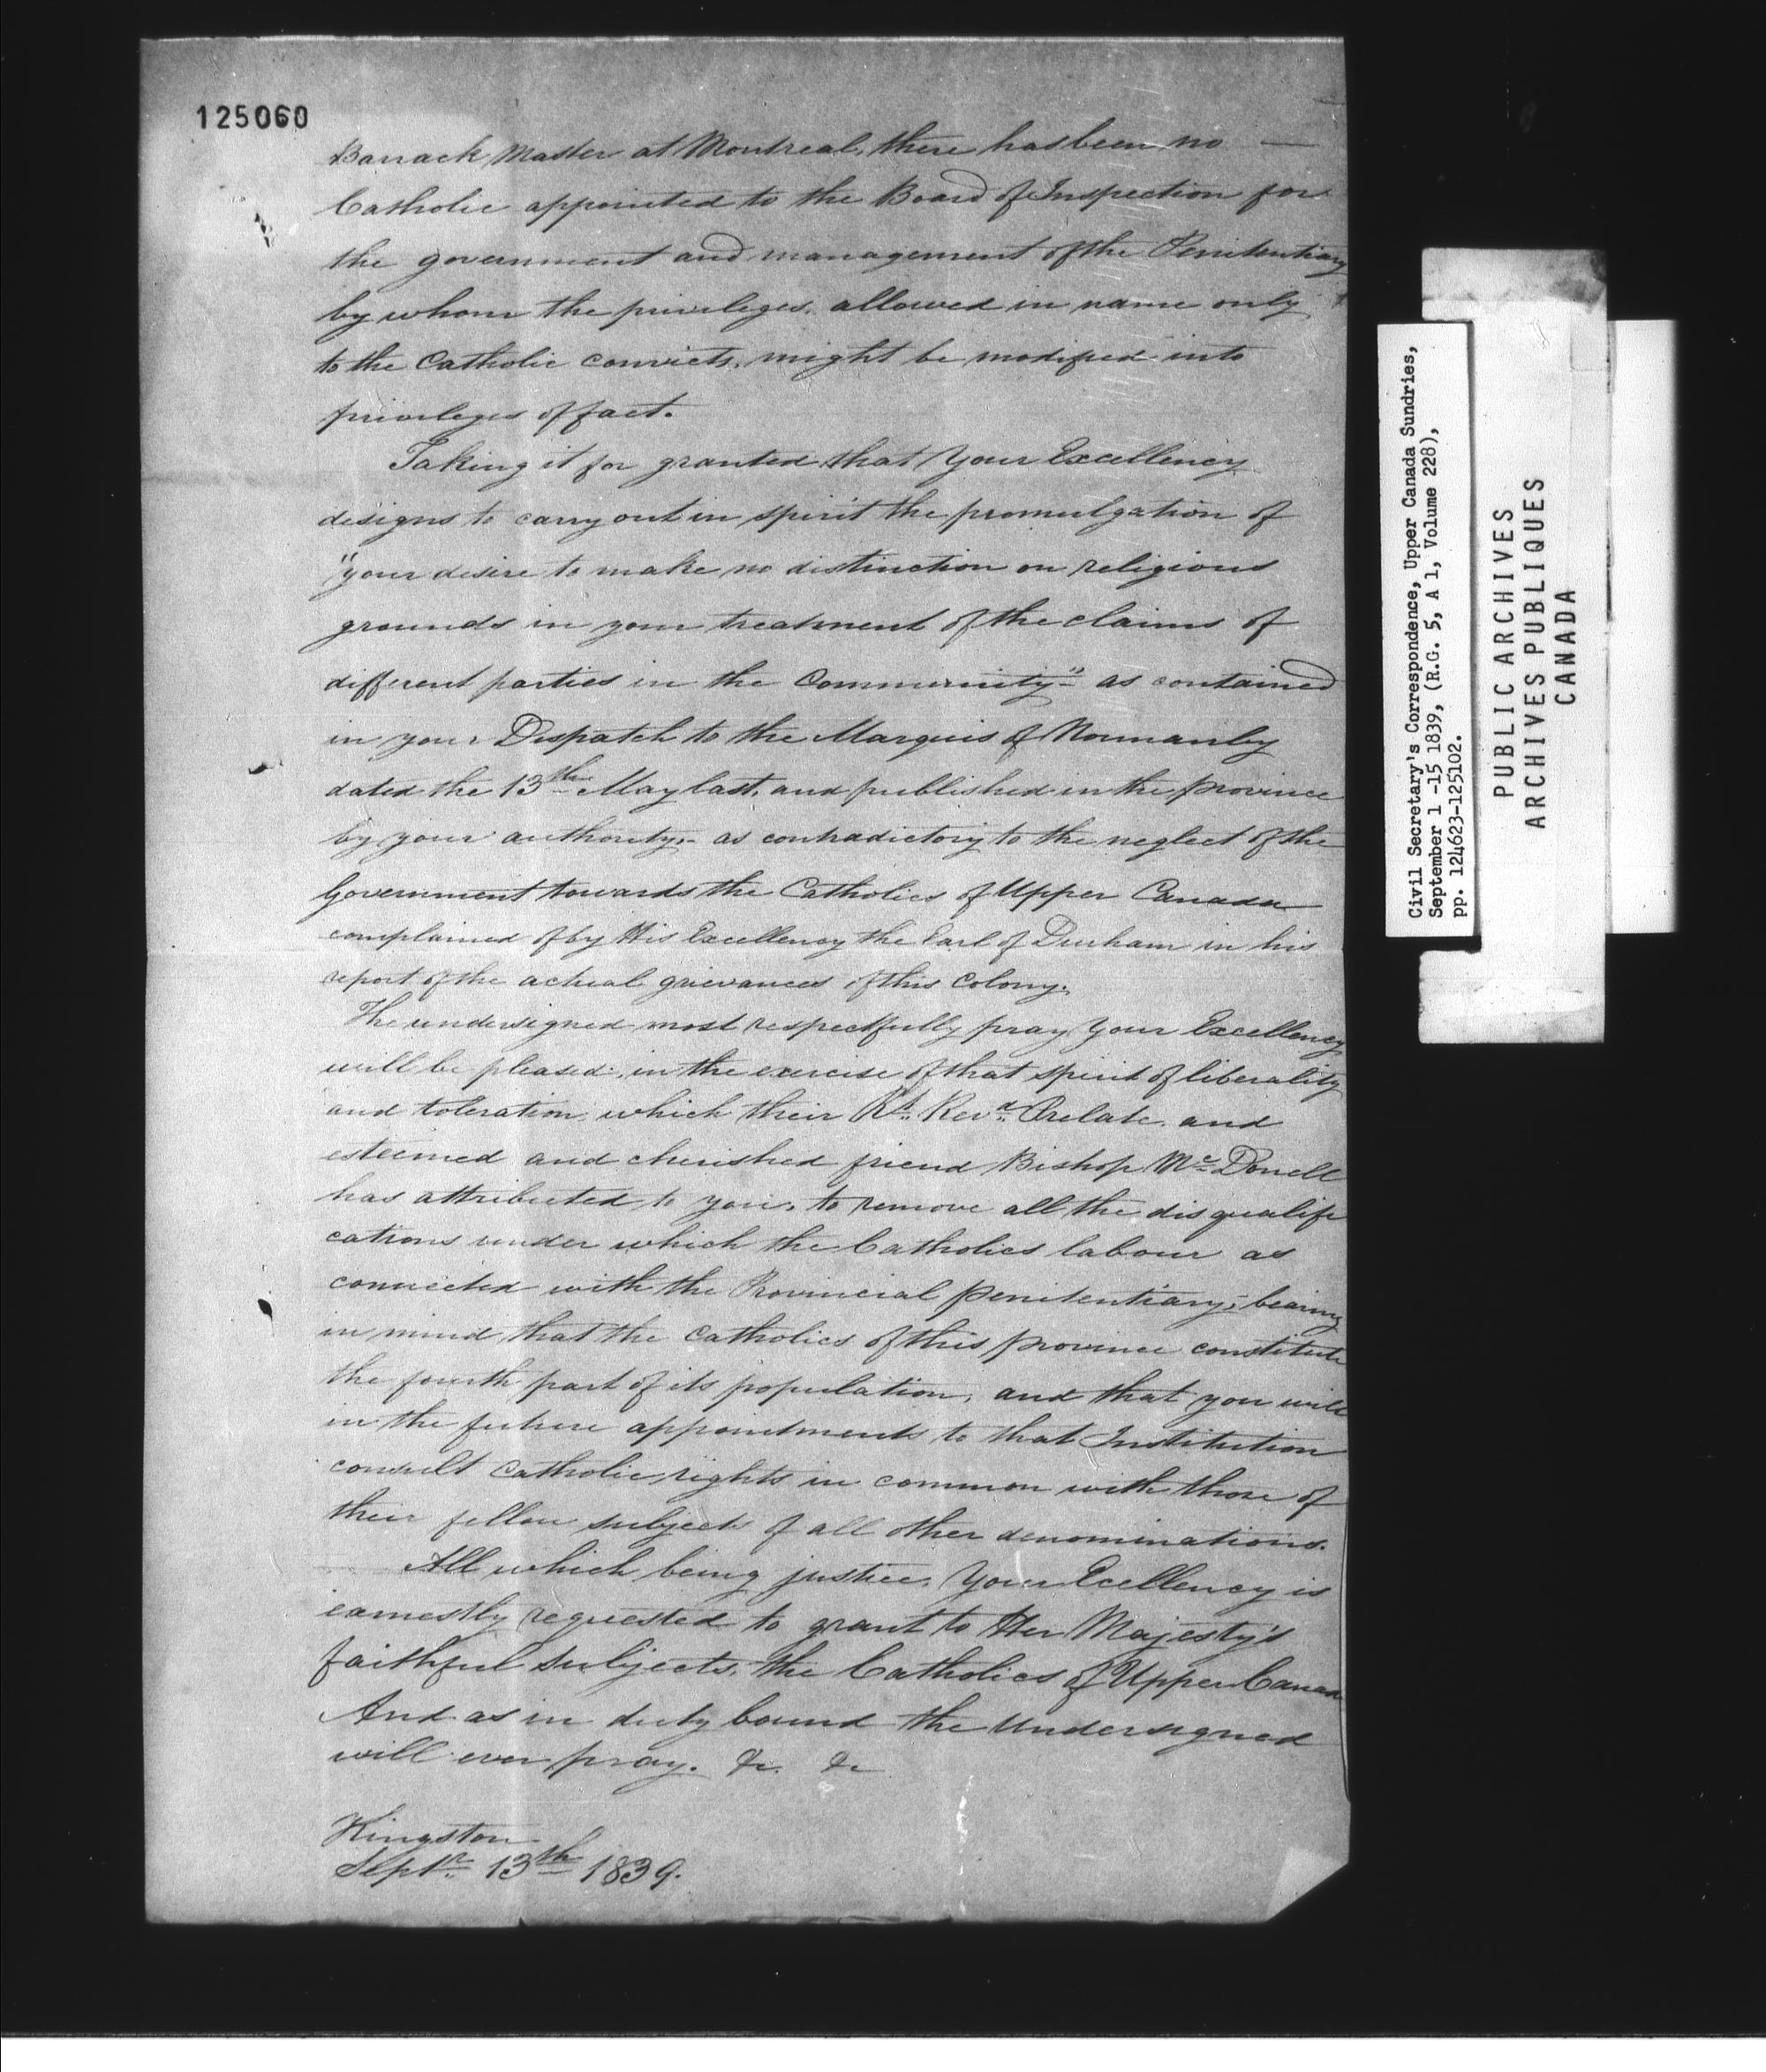 125060
Barrack Master at Montreal, there has been no —
Catholic appointed to the Board of Inspection for
the government and management of the Penitentiary
by whom the privileges, allowed in name only
to the Catholic convicts, might be modified into
privileges of fact.
Taking it for granted that Your Excellency
designs to carry out in spirit the promulgation of
"your desire to make no distinction on religious
grounds in your treatment of the claims of
different parties in the Community" as contained
in your Dispatch to the Marquis of Normanby
dated the 13th May last, and published in the province
by your authority,- as contradictory to the neglect of the
Government towards the Catholics of Upper Canada
complained of by His Excellency the Earl of Durham in his
report of the actual grievances of this Colony.
The undersigned most respectfully pray Your Excellency
will be pleased, in the exercise of that spirit of liberality
and toleration, which their Rt. Revd. Prelate, and
esteemed and cherished friend Bishop Mc Donell
has attributed to you, to remove all the disqualifi
cations under which the Catholics labour as
connected with the Provincial Penitentiary; bearing
in mind that the Catholics of this province constitute
the fourth part of its population, and that you will
in the future appointments to that Institution
consult Catholic rights in common with those of
their fellow subjects of all other denominations.
All which being justice, Your Ecellency is
earnestly requested to grant to Her Majesty's
faithful Subjects, the Catholics of Upper Canada
And as in duty bound the Undersigned
will ever pray. &c. &c
Kingston
Septr. 13th 1839.
Civil Secretary's Correspondence, Upper Canada Sundries,
September 1 -15 1839, (R.G. 5, A 1, Volume 228),
pp. 124623-125102.
PUBLIC ARCHIVES
ARCHIVES PUBLIQUES
CANADA